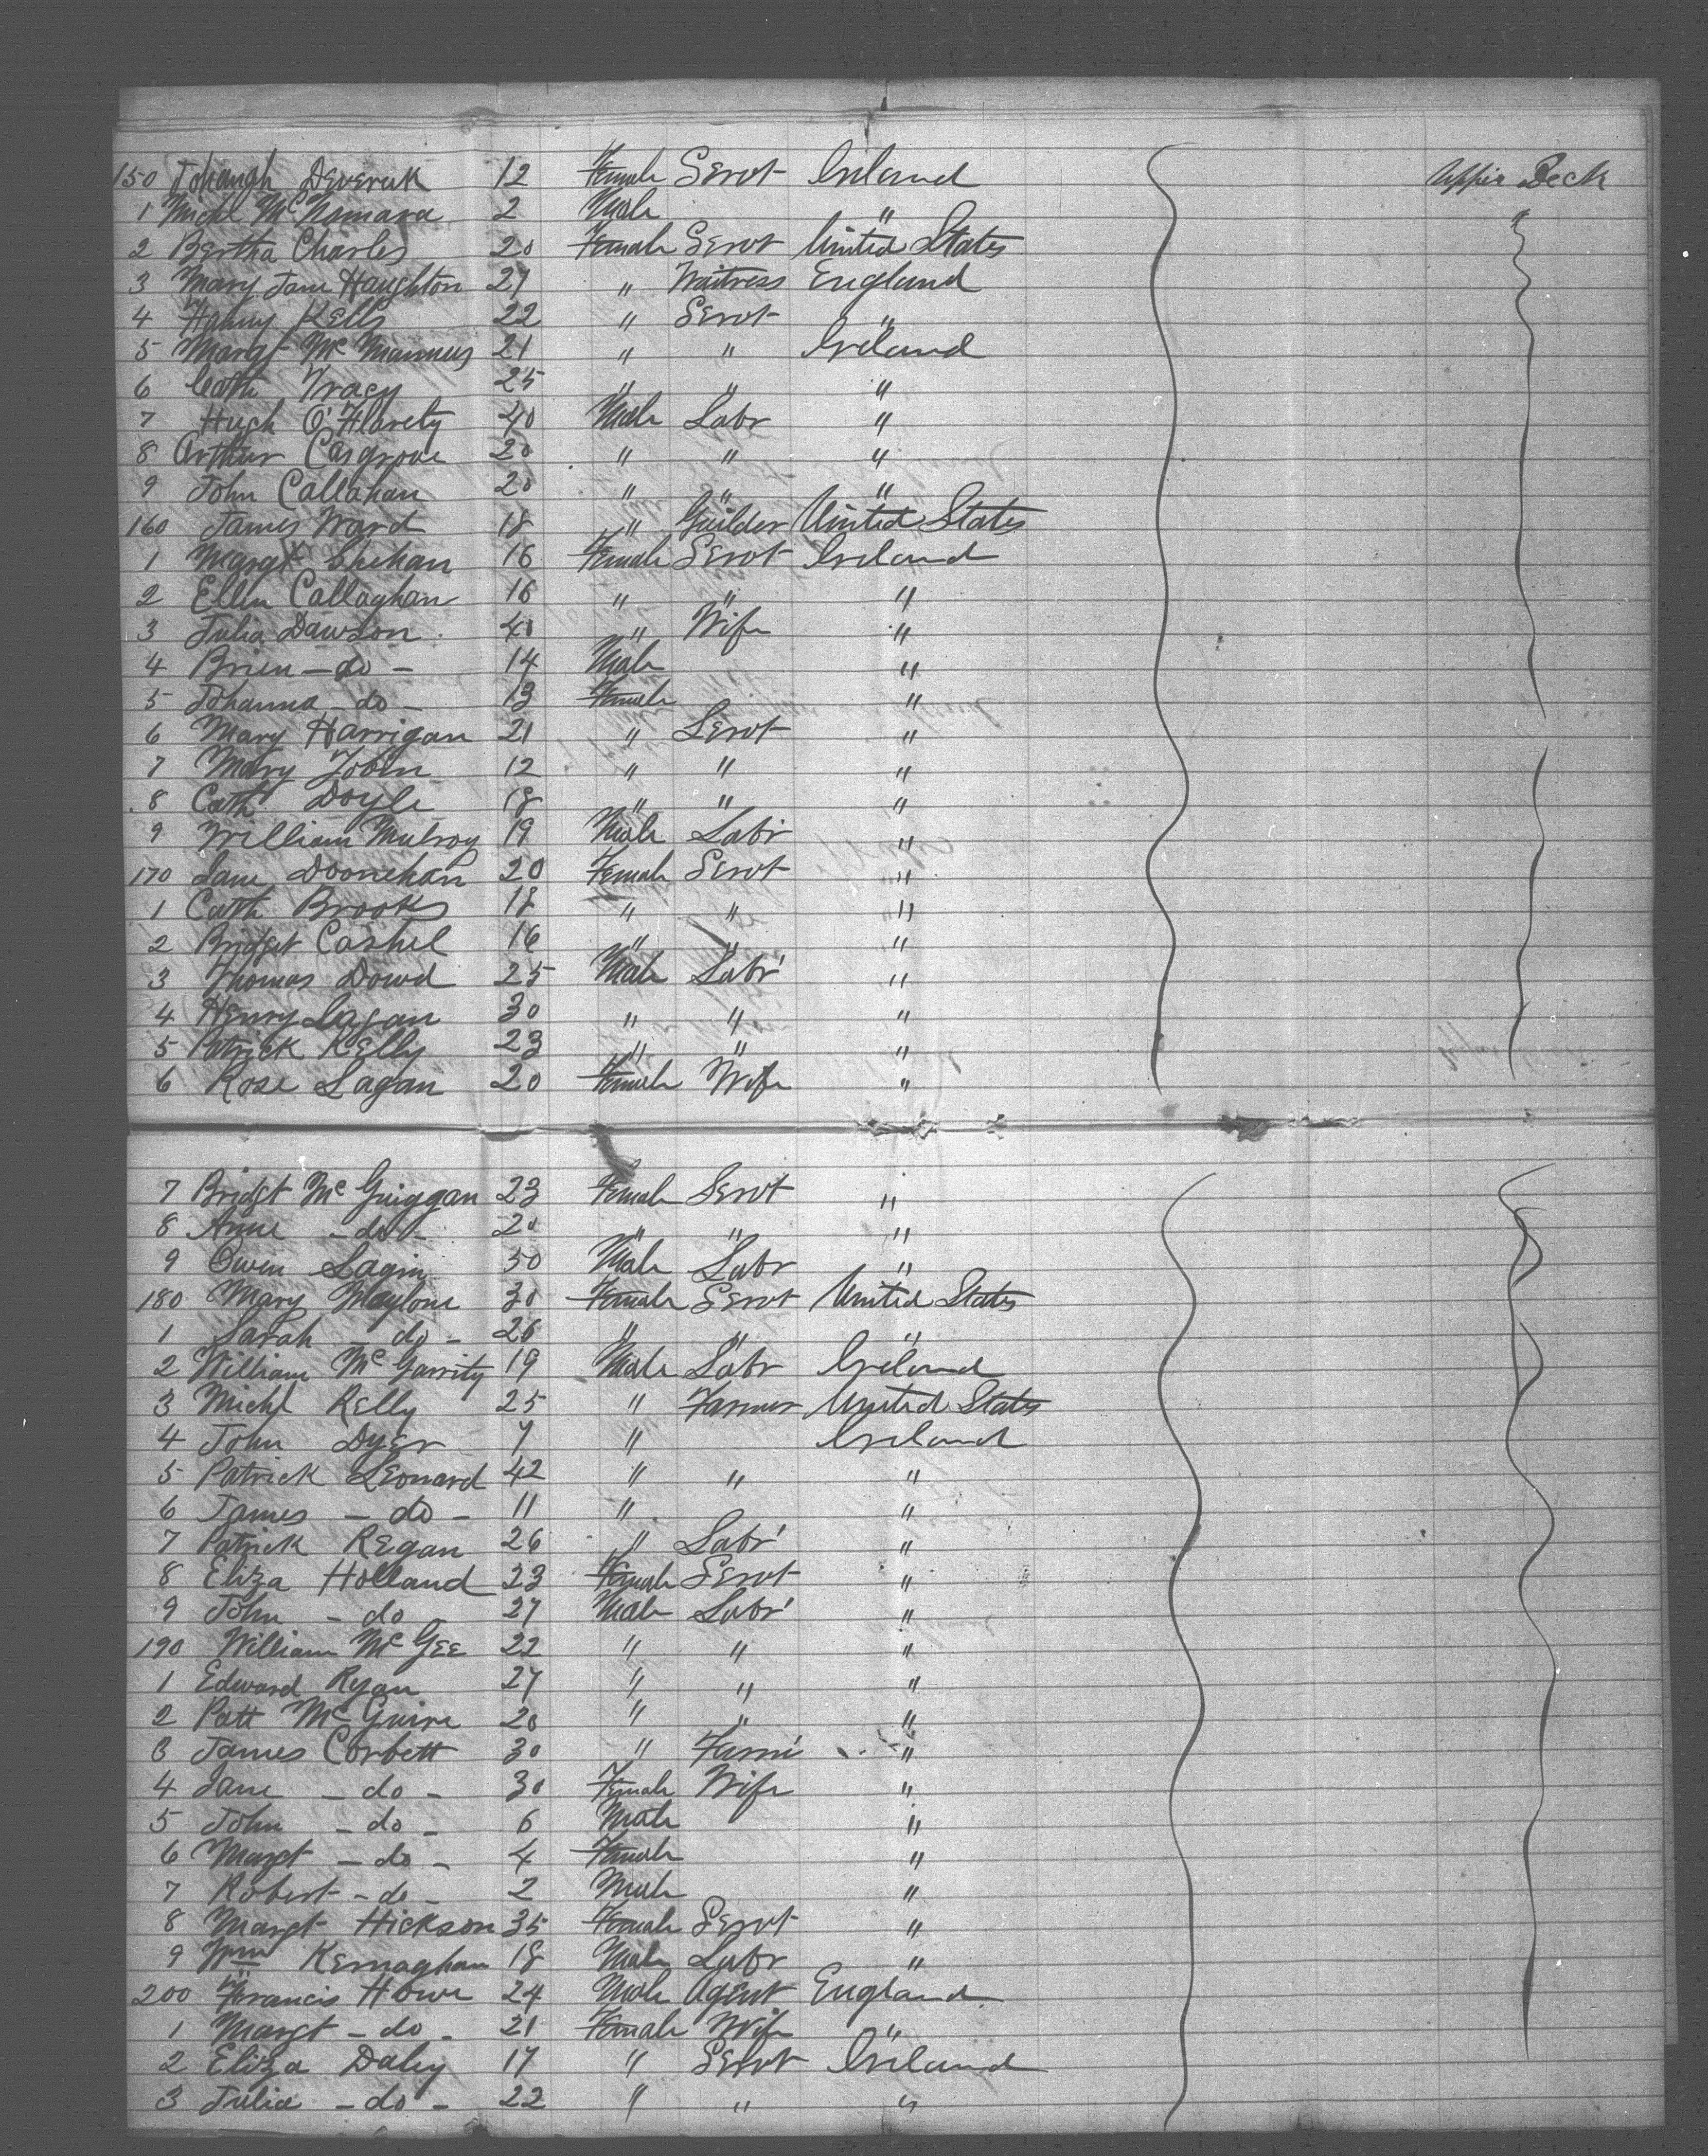 150 Johanah Devereuk 12 Female Servt Ireland Upper Deck
1 Michl McNamara 2 Male " "
2 Bertha Charles 20 Female Servt United States
3 Mary Jane Haughton 21 " Waitress England
4 Fanny Kells 22 " Servt "
5 Margt McManus 21 " " Ireland
6 Cath Tracy 25 " " "
7 Hugh O'Flarety 40 Male Labr "
8 Arthur Casgrove 20 " " "
9 John Callahan 20 " " "
160 James Ward 18 " Guilder United States
1 Margt Shehan 16 Female Servt Ireland
2 Ellen Callaghan 16 " " "
3 Julia Dawson 40 " Wife "
4 Brien - do - 14 Male "
5 Johanna - do - 13 Female "
6 Mary Harrigan 21 " Servt "
7 Mary Tobin 12 " " "
8 Cath Doyle 18 " " "
9 William Mulroy 19 Male Labr "
170 Jane Doonehan 20 Female Servt "
1 Cath Brooks 18 " " "
2 Bridget Cashel 16 " " "
3 Thomas Dowd 25 Male Labr "
4 Henry Lagan 30 " " "
5 Patrick Kelly 23 " " "
6 Rose Lagan 20 Female Wife "
7 Bridgt McGuiggan 23 Female Servt "
8 Anne - do - 20 " " "
9 Owen Lagin 50 Male Labr "
180 Mary Maylone 30 Female Servt United States
1 Sarah - do - 26 " " "
2 William McGarrity 19 Male Labr Ireland
3 Michl Kelly 25 " Farmer United States
4 John Dyer 7 " Ireland
5 Patrick Leonard 42 " " "
6 James - do - 11 " "
7 Patrick Regan 26 " Labr "
8 Eliza Holland 23 Female Servt "
9 John - do - 27 Male Labr "
190 William McGee 22 " " "
1 Edward Ryan 27 " " "
2 Patt McGuire 20 " " "
3 James Corbett 30 " Farmr "
4 Jane - do - 30 Female Wife "
5 John - do - 6 Male "
6 Margt - do - 4 Female "
7 Robert - do - 2 Male "
8 Margt Hickson 35 Female Servt "
9 Wm Kernaghan 18 Male Labr "
200 Francis Howe 24 Male Agent England
1 Margt - do - 21 Female Wife "
2 Eliza Daley 17 " Servt Ireland
3 Julia - do - 22 " " "